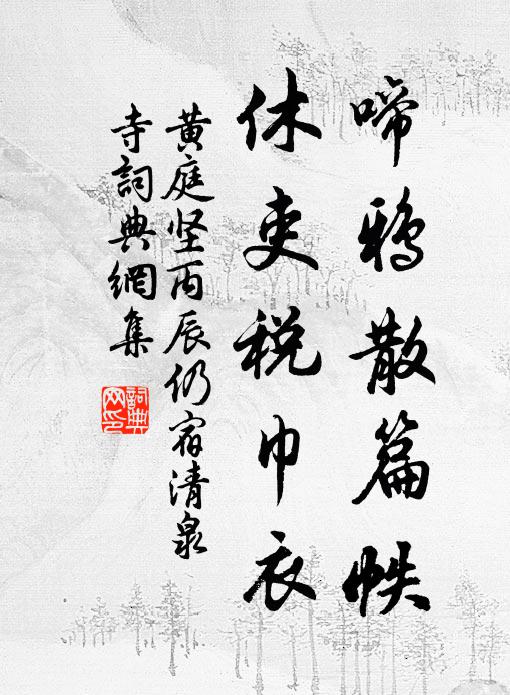 啼鴉散篇帙
休吏稅巾衣
黄庭坚丙辰仍宿清泉
寺詞典網集
詞典网印